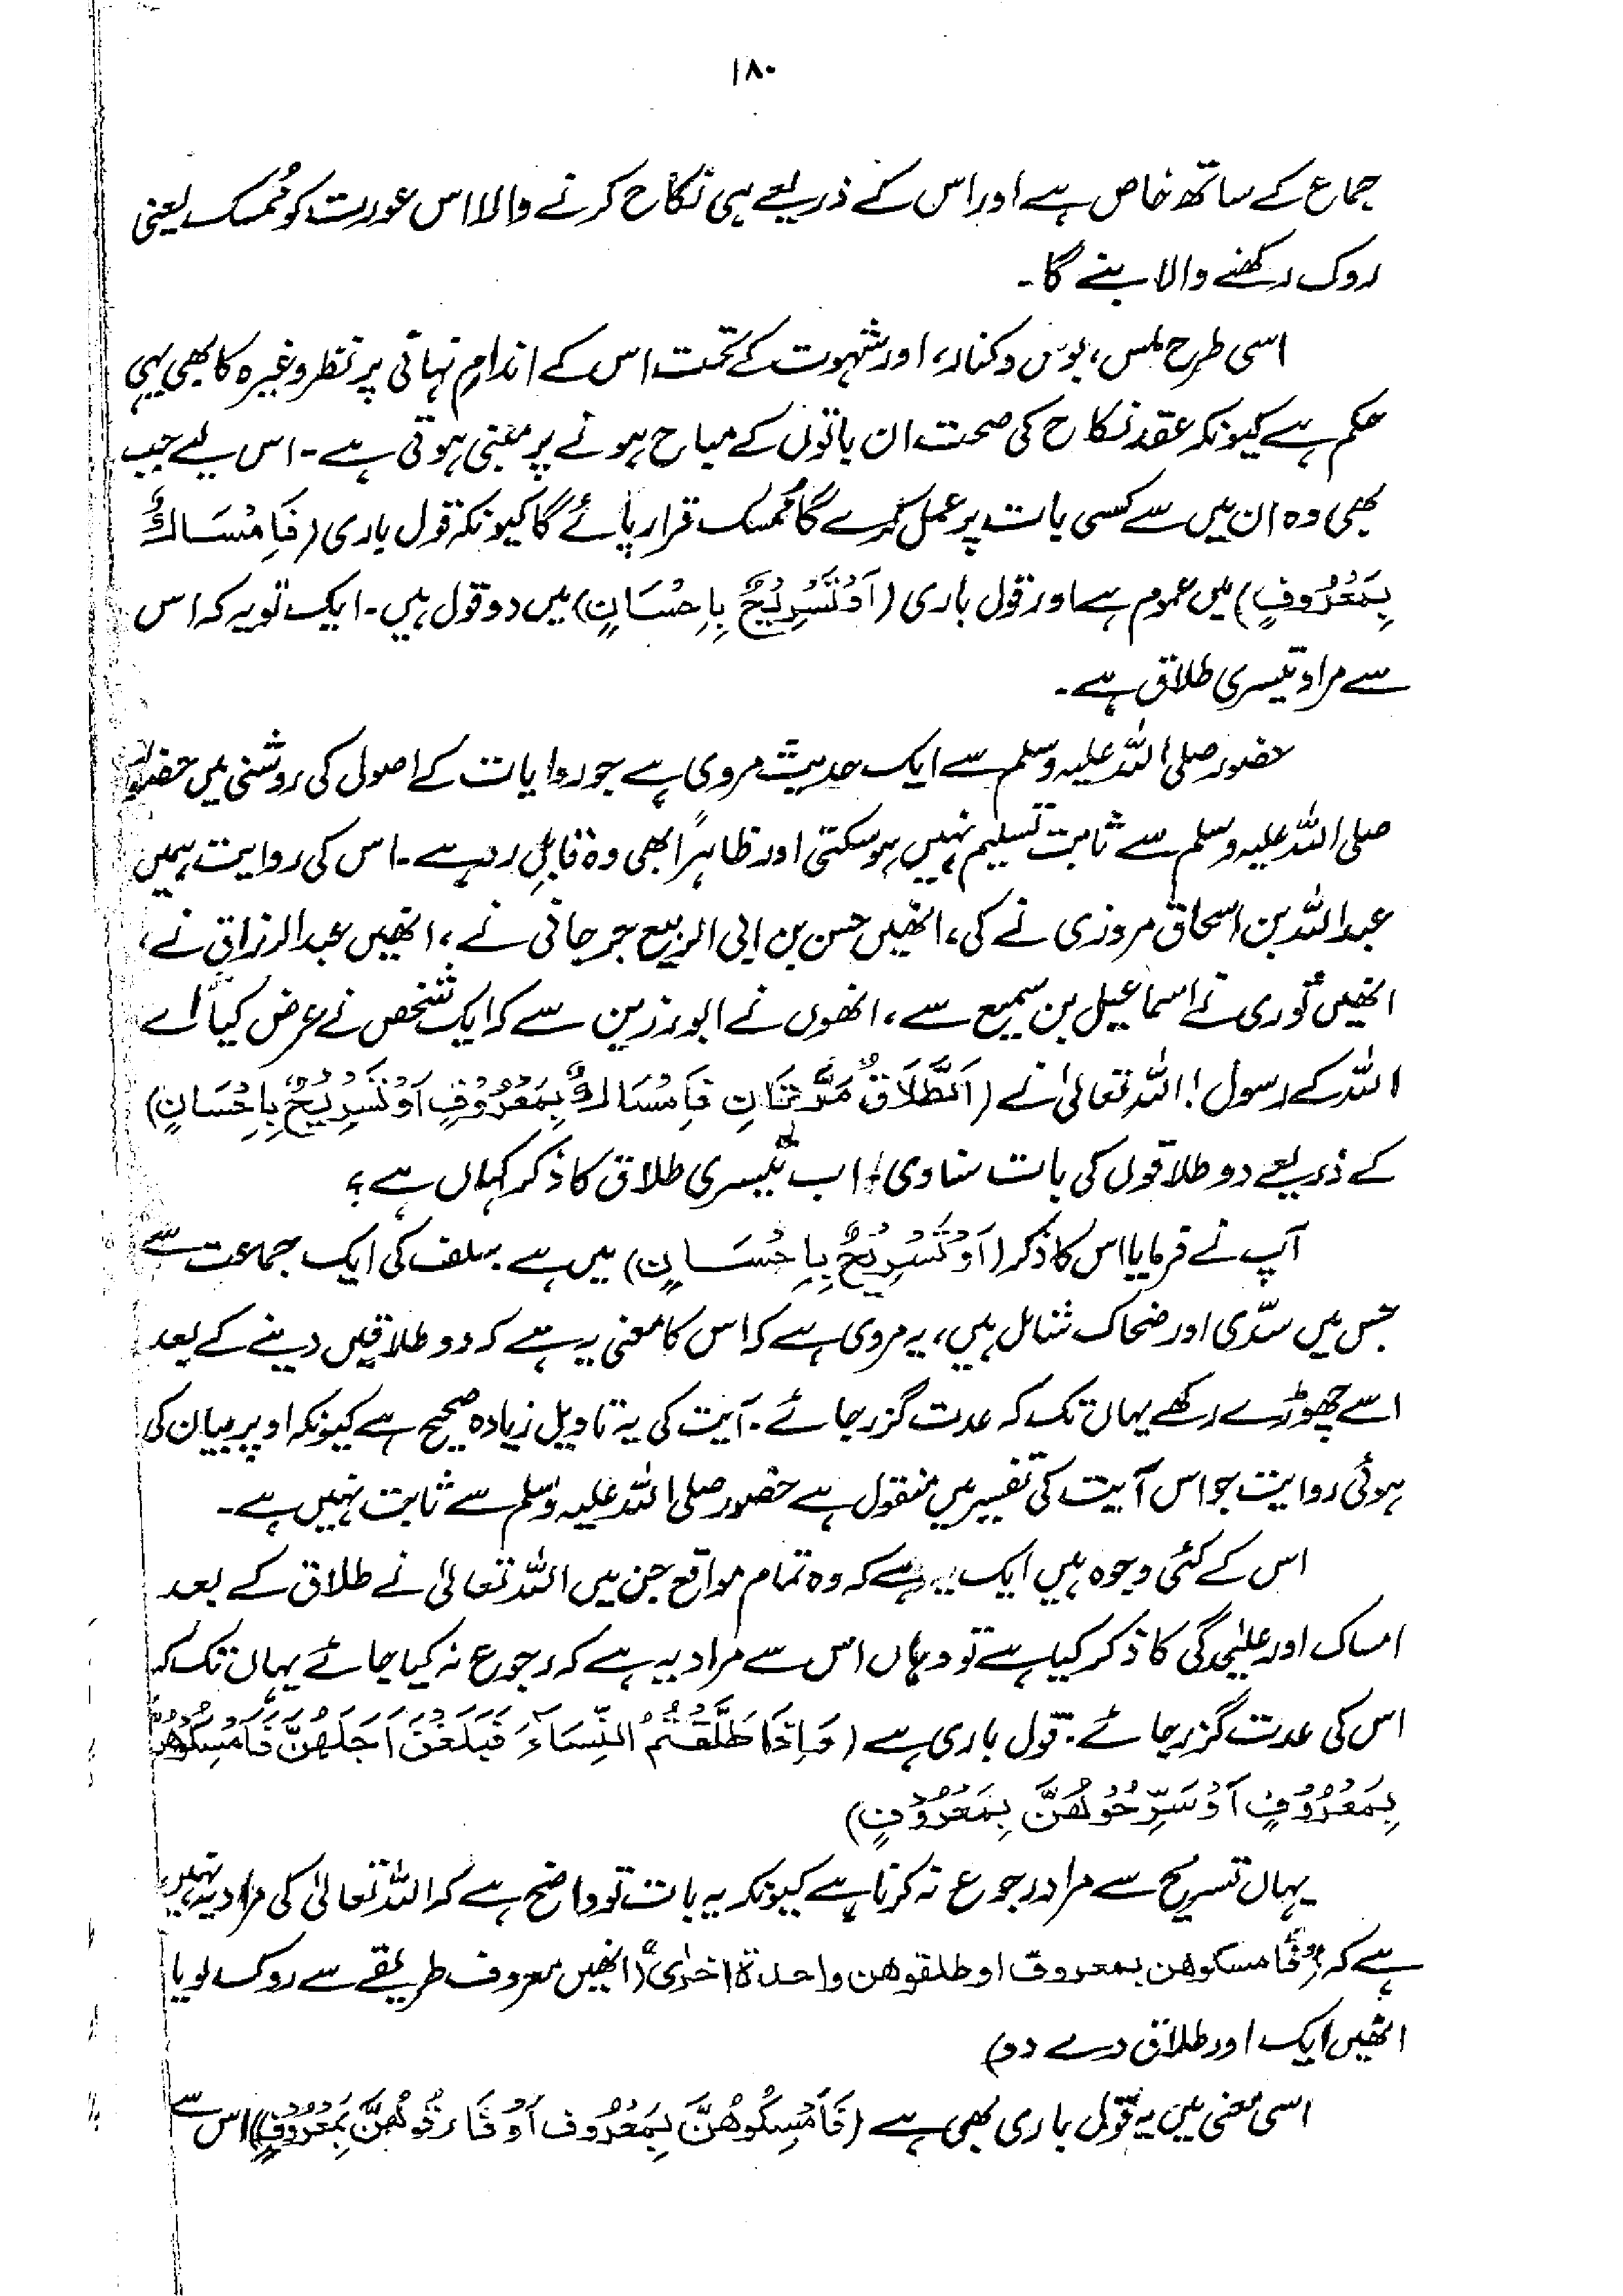 ۱۸۰
جماع کے ساتھ خاص ہے اور اس کے ذریعے ہی نکاح کرنے والا اس عورت کو مُمسک یعنی
روک رکھنے والا بنے گا۔
اسی طرح لمس، بوس و کنار، اور شہوت کے تحت اس کے اندامِ نہانی پر نظر وغیرہ کا بھی یہی
حکم ہے کیونکہ عقد نکاح کی صحت ان باتوں کے مباح ہونے پر مبنی ہوتی ہے۔ اس لیے جب
بھی وہ ان میں سے کسی بات پر عمل کرے گا مُمسک قرار پائے گا کیونکہ قول باری (فَاِمْسَاكٌ
بِمَعْرُوْفٍ) میں عموم ہے اور قول باری (اَوْ تَسْرِيْحٌ بِاِحْسَانٍ) میں دو قول ہیں۔ ایک تو یہ کہ اس
سے مراد تیسری طلاق ہے۔
حضور صلی اللہ علیہ وسلم سے ایک حدیث مروی ہے جو روایات کے اصول کی روشنی میں حضور
صلی اللہ علیہ وسلم سے ثابت تسلیم نہیں ہو سکتی اور ظاہراً بھی وہ قابلِ رد ہے۔ اس کی روایت ہمیں
عبداللہ بن اسحاق مروزی نے کی، انھیں حسن بن ابی الربیع جرجانی نے، انھیں عبدالرزاق نے،
انھیں ثوری نے اسماعیل بن سمیع سے، انھوں نے ابورزین سے کہ ایک شخص نے عرض کیا "اے
اللہ کے رسول! اللہ تعالیٰ نے (اَلطَّلَاقُ مَرَّتَانِ فَاِمْسَاكٌ بِمَعْرُوْفٍ اَوْ تَسْرِيْحٌ بِاِحْسَانٍ)
کے ذریعے دو طلاقوں کی بات سنا دی، اب تیسری طلاق کا ذکر کہاں ہے؟
آپ نے فرمایا اس کا ذکر (اَوْ تَسْرِيْحٌ بِاِحْسَانٍ) میں ہے۔ سلف کی ایک جماعت سے
جس میں سدّی اور ضحاک شامل ہیں، یہ مروی ہے کہ اس کا معنی یہ ہے کہ دو طلاقیں دینے کے بعد
اسے چھوڑے رکھے یہاں تک کہ عدت گزر جائے۔ آیت کی یہ تاویل زیادہ صحیح ہے کیونکہ اوپر بیان کی
ہوئی روایت جو اس آیت کی تفسیر میں منقول ہے حضور صلی اللہ علیہ وسلم سے ثابت نہیں ہے۔
اس کے کئی وجوہ ہیں ایک یہ ہے کہ وہ تمام مواقع جن میں اللہ تعالیٰ نے طلاق کے بعد
امساک اور علیٰحدگی کا ذکر کیا ہے تو وہاں اس سے مراد یہ ہے کہ رجوع نہ کیا جائے یہاں تک کہ
اس کی عدت گزر جائے۔ قول باری ہے (وَاِذَا طَلَّقْتُمُ النِّسَآءَ فَبَلَغْنَ اَجَلَهُنَّ فَاَمْسِكُوْهُنَّ
بِمَعْرُوْفٍ اَوْ سَرِّحُوْهُنَّ بِمَعْرُوْفٍ)
یہاں تسریح سے مراد رجوع نہ کرنا ہے کیونکہ یہ بات تو واضح ہے کہ اللہ تعالیٰ کی مراد یہ نہیں
ہے کہ "فامسكوهن بمعروف او طلقوهن واحدة اخرىٰ" (انھیں معروف طریقے سے روک لو یا
انھیں ایک اور طلاق دے دو)
اسی معنی میں یہ قول باری بھی ہے (فَاَمْسِكُوْهُنَّ بِمَعْرُوْفٍ اَوْ فَارِقُوْهُنَّ بِمَعْرُوْفٍ) اس سے